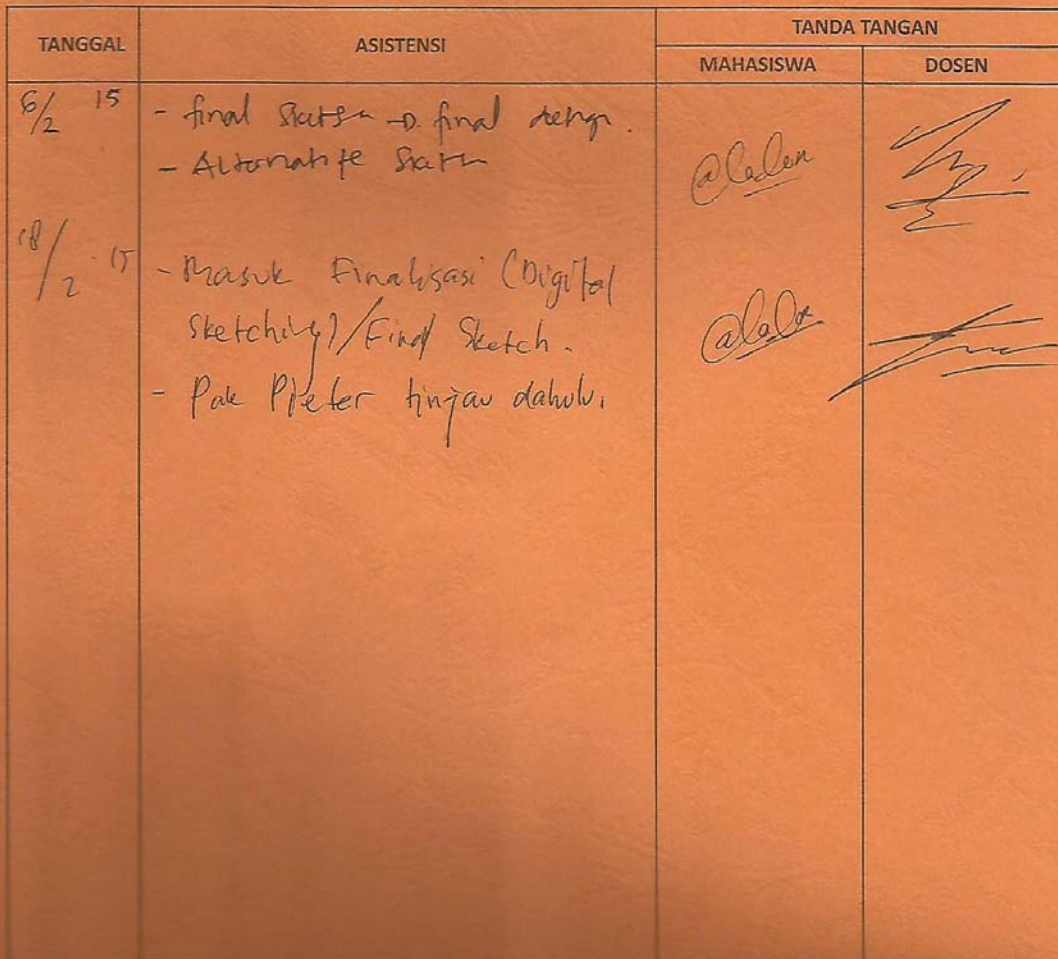 TANGGAL
ASISTENSI
TANDA TANGAN
MAHASISWA
DOSEN
6/2 15
- final → final
- Alternatife
18/2 15
- Masuk Finalisasi (Digital
Sketching)/Final Sketch.
- Pak Pieter tinjau dahulu.